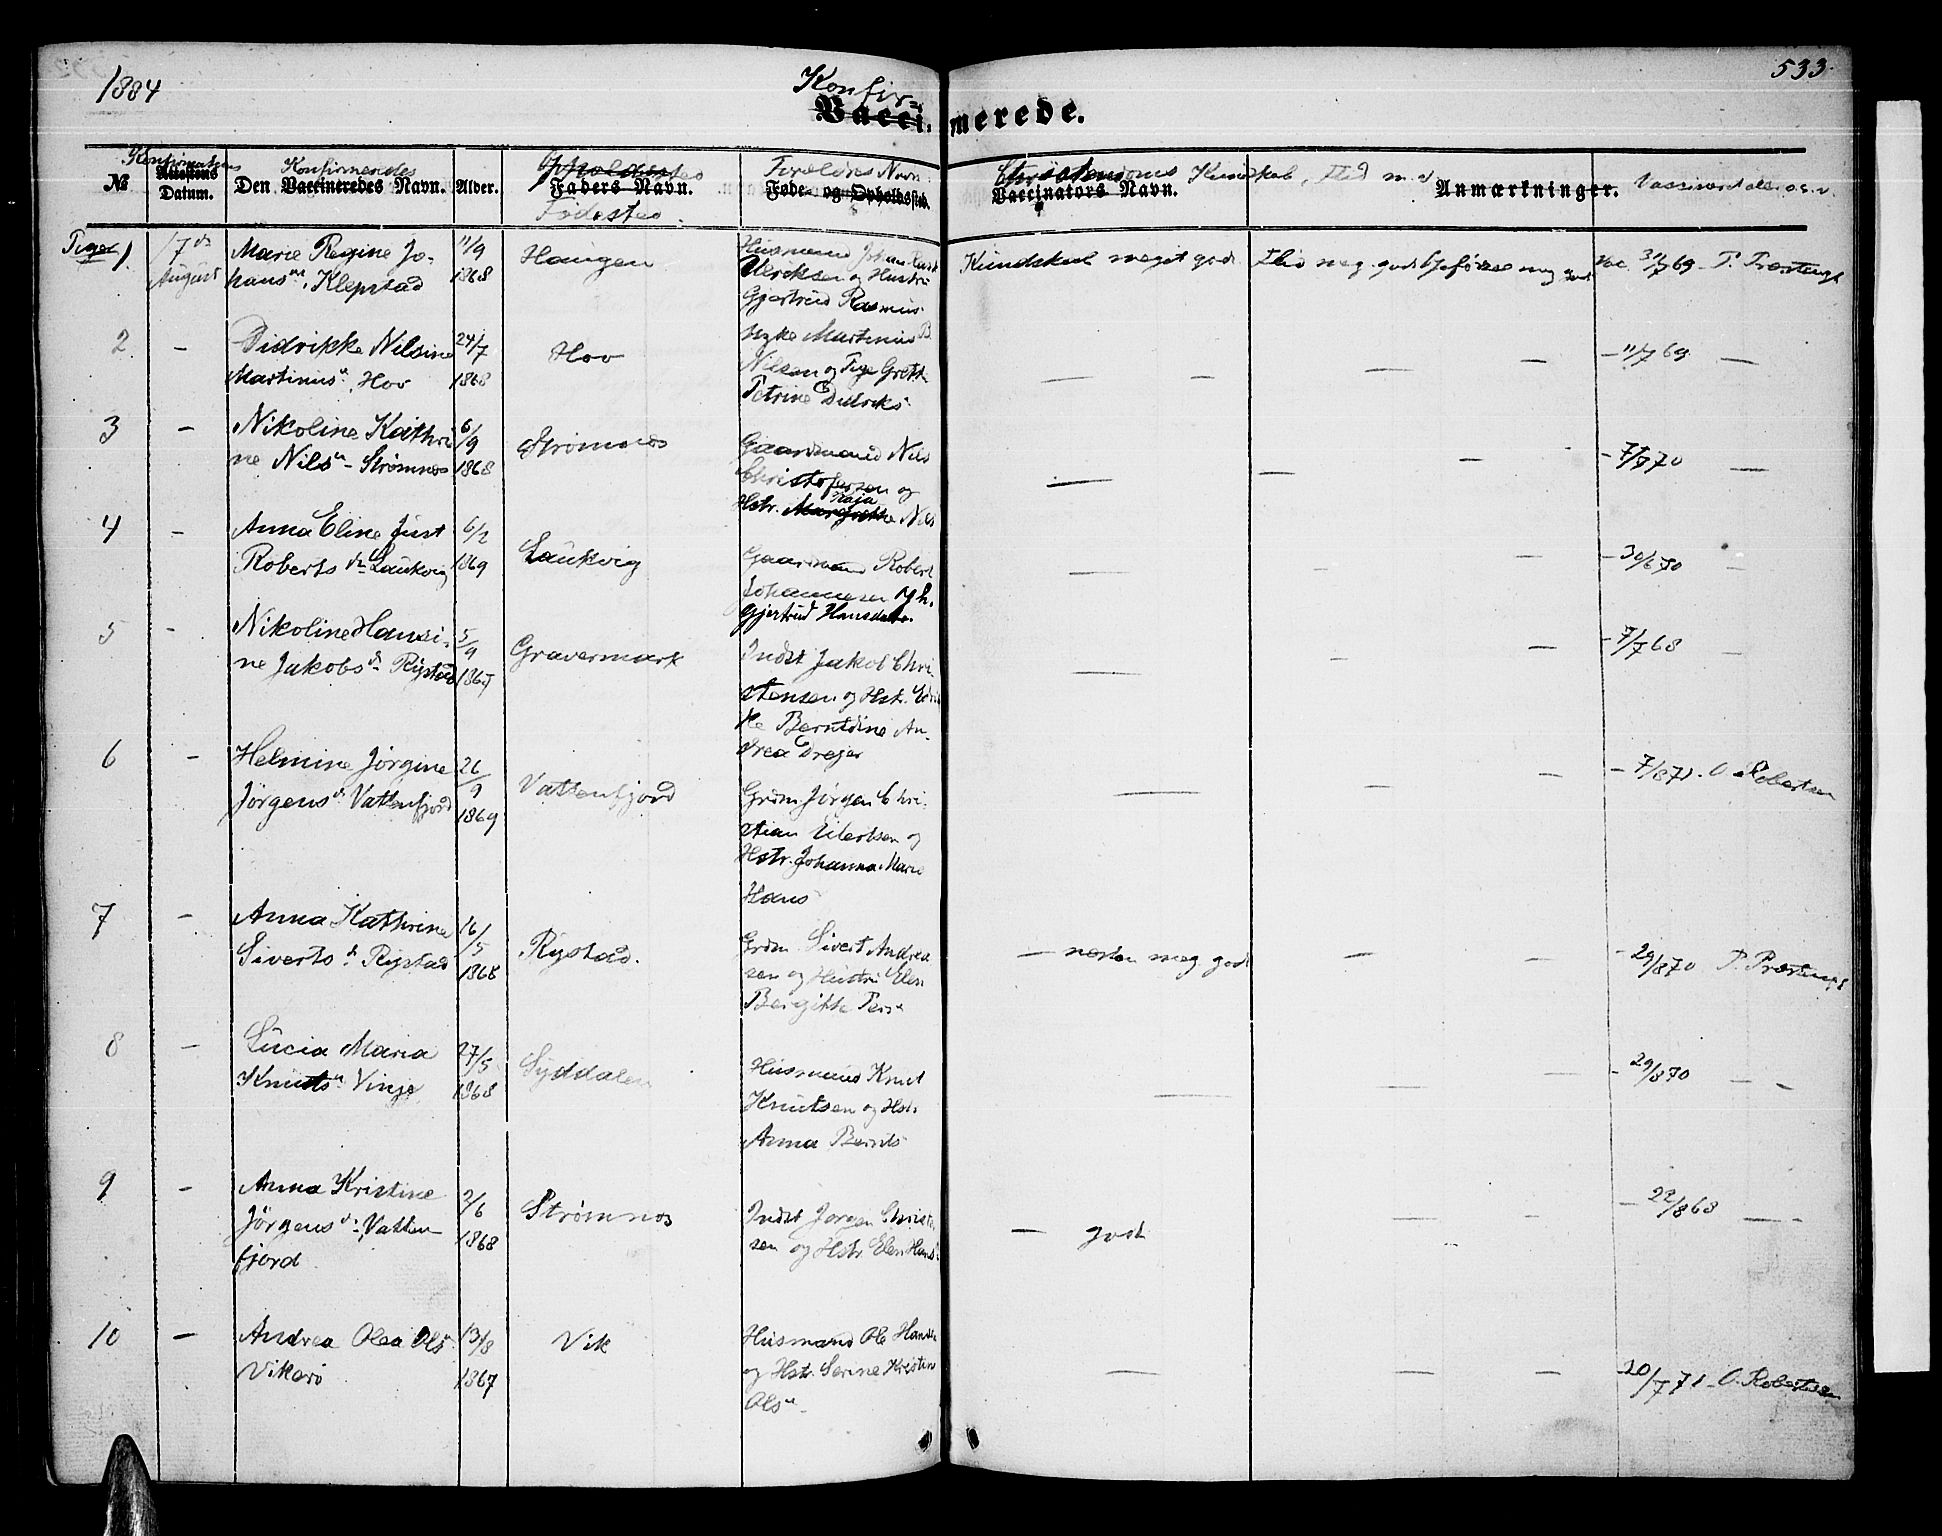 1884
533.
Konfir-
Vacci. merede.
№
Konfirmations
Attestens
Datum.
Konfirmendes
Den Vaccineredes Navn.
Alder.
Opholdssted
Faders Navn.
Fødested.
Forældres Navn
Føde- og Opholdssted.
Christendoms Kundskab, Flid m. v
Vaccinators Navn.
Anmærkninger.
Piger 1
17de
August
Marie Regine Jo-
hansdr. Klepstad
11/9
1868
Haugen
Husmand Johan
Ulriksen og Hustru
Gjertrud Rasmus
Kundskab meget god. Flid meg. god Opførsel meg god
Vac. 31/7 69 P. Præsteng
2
–
Didrikke Nilsine
Martinusdr. Hov
24/7
1868
Hov
Martinus B.
Nilsen og Pige Grethe
Petrine Didriks
– 11/7 69 –
3
–
Nikoline Kathri
ne Nilsdr. Strømnes
6/9
1868
Strømnes
Gaardmand Nils
Christofersen og
Kaja
Hstr. Margrethe Nils
– 7/8 70 –
4
–
Anna Eline Just
Roberts dr. Laukvig
6/2
1869
Laukvig
Gaardmand Robert
Johannesen og h.
Gjertrud Hansdatter.
– 30/6 70 –
5
–
Nikoline Hansi-
ne Jakobs dr. Rystad
5/9
Gravermark
Indst Jakob Chri
stensen og Hstr.
Berntdine An-
drea Dreyer
– 7/7 68 –
6
–
Helmine Jørgine
Jørgens dr. Vattenfjord
26/9
1869
Vattenfjord
Grdm. Jørgen Chri-
stian Eilertsen og
Hstr. Johanna Marie
Hans
– 7/8 71. O. Robertsen
7
–
Anna Kathrine
Siverts dr. Rystad
16/5
1868
Rystad.
Grdm. Sivert Andrea
sen og Hustru Elen
Bergitte Pers
– næsten meg. god
– 29/8 70 P. Præsteng
8
–
Lucia Maria
Knutsdr. Vinje
27/5
1868
Syddalen
Husmand Knut
Knutsen og Hstr.
Anna Bernts
– 29/8 70 – –
9
–
Anna Kristine
Jørgens dr. Vatten
fjord
2/6
1868
Strømnes
Indst Jørgen Christen
sen og Hstr. Elen Hans
– god
– 22/8 68 –
10
–
Andrea Olea Olsdr.
Vikerø
13/8
1867
Vik
Husmand Ole Hansen
og Hstr. Serine Kristine
Olsdr.
20/7 71 – O. Robertsen